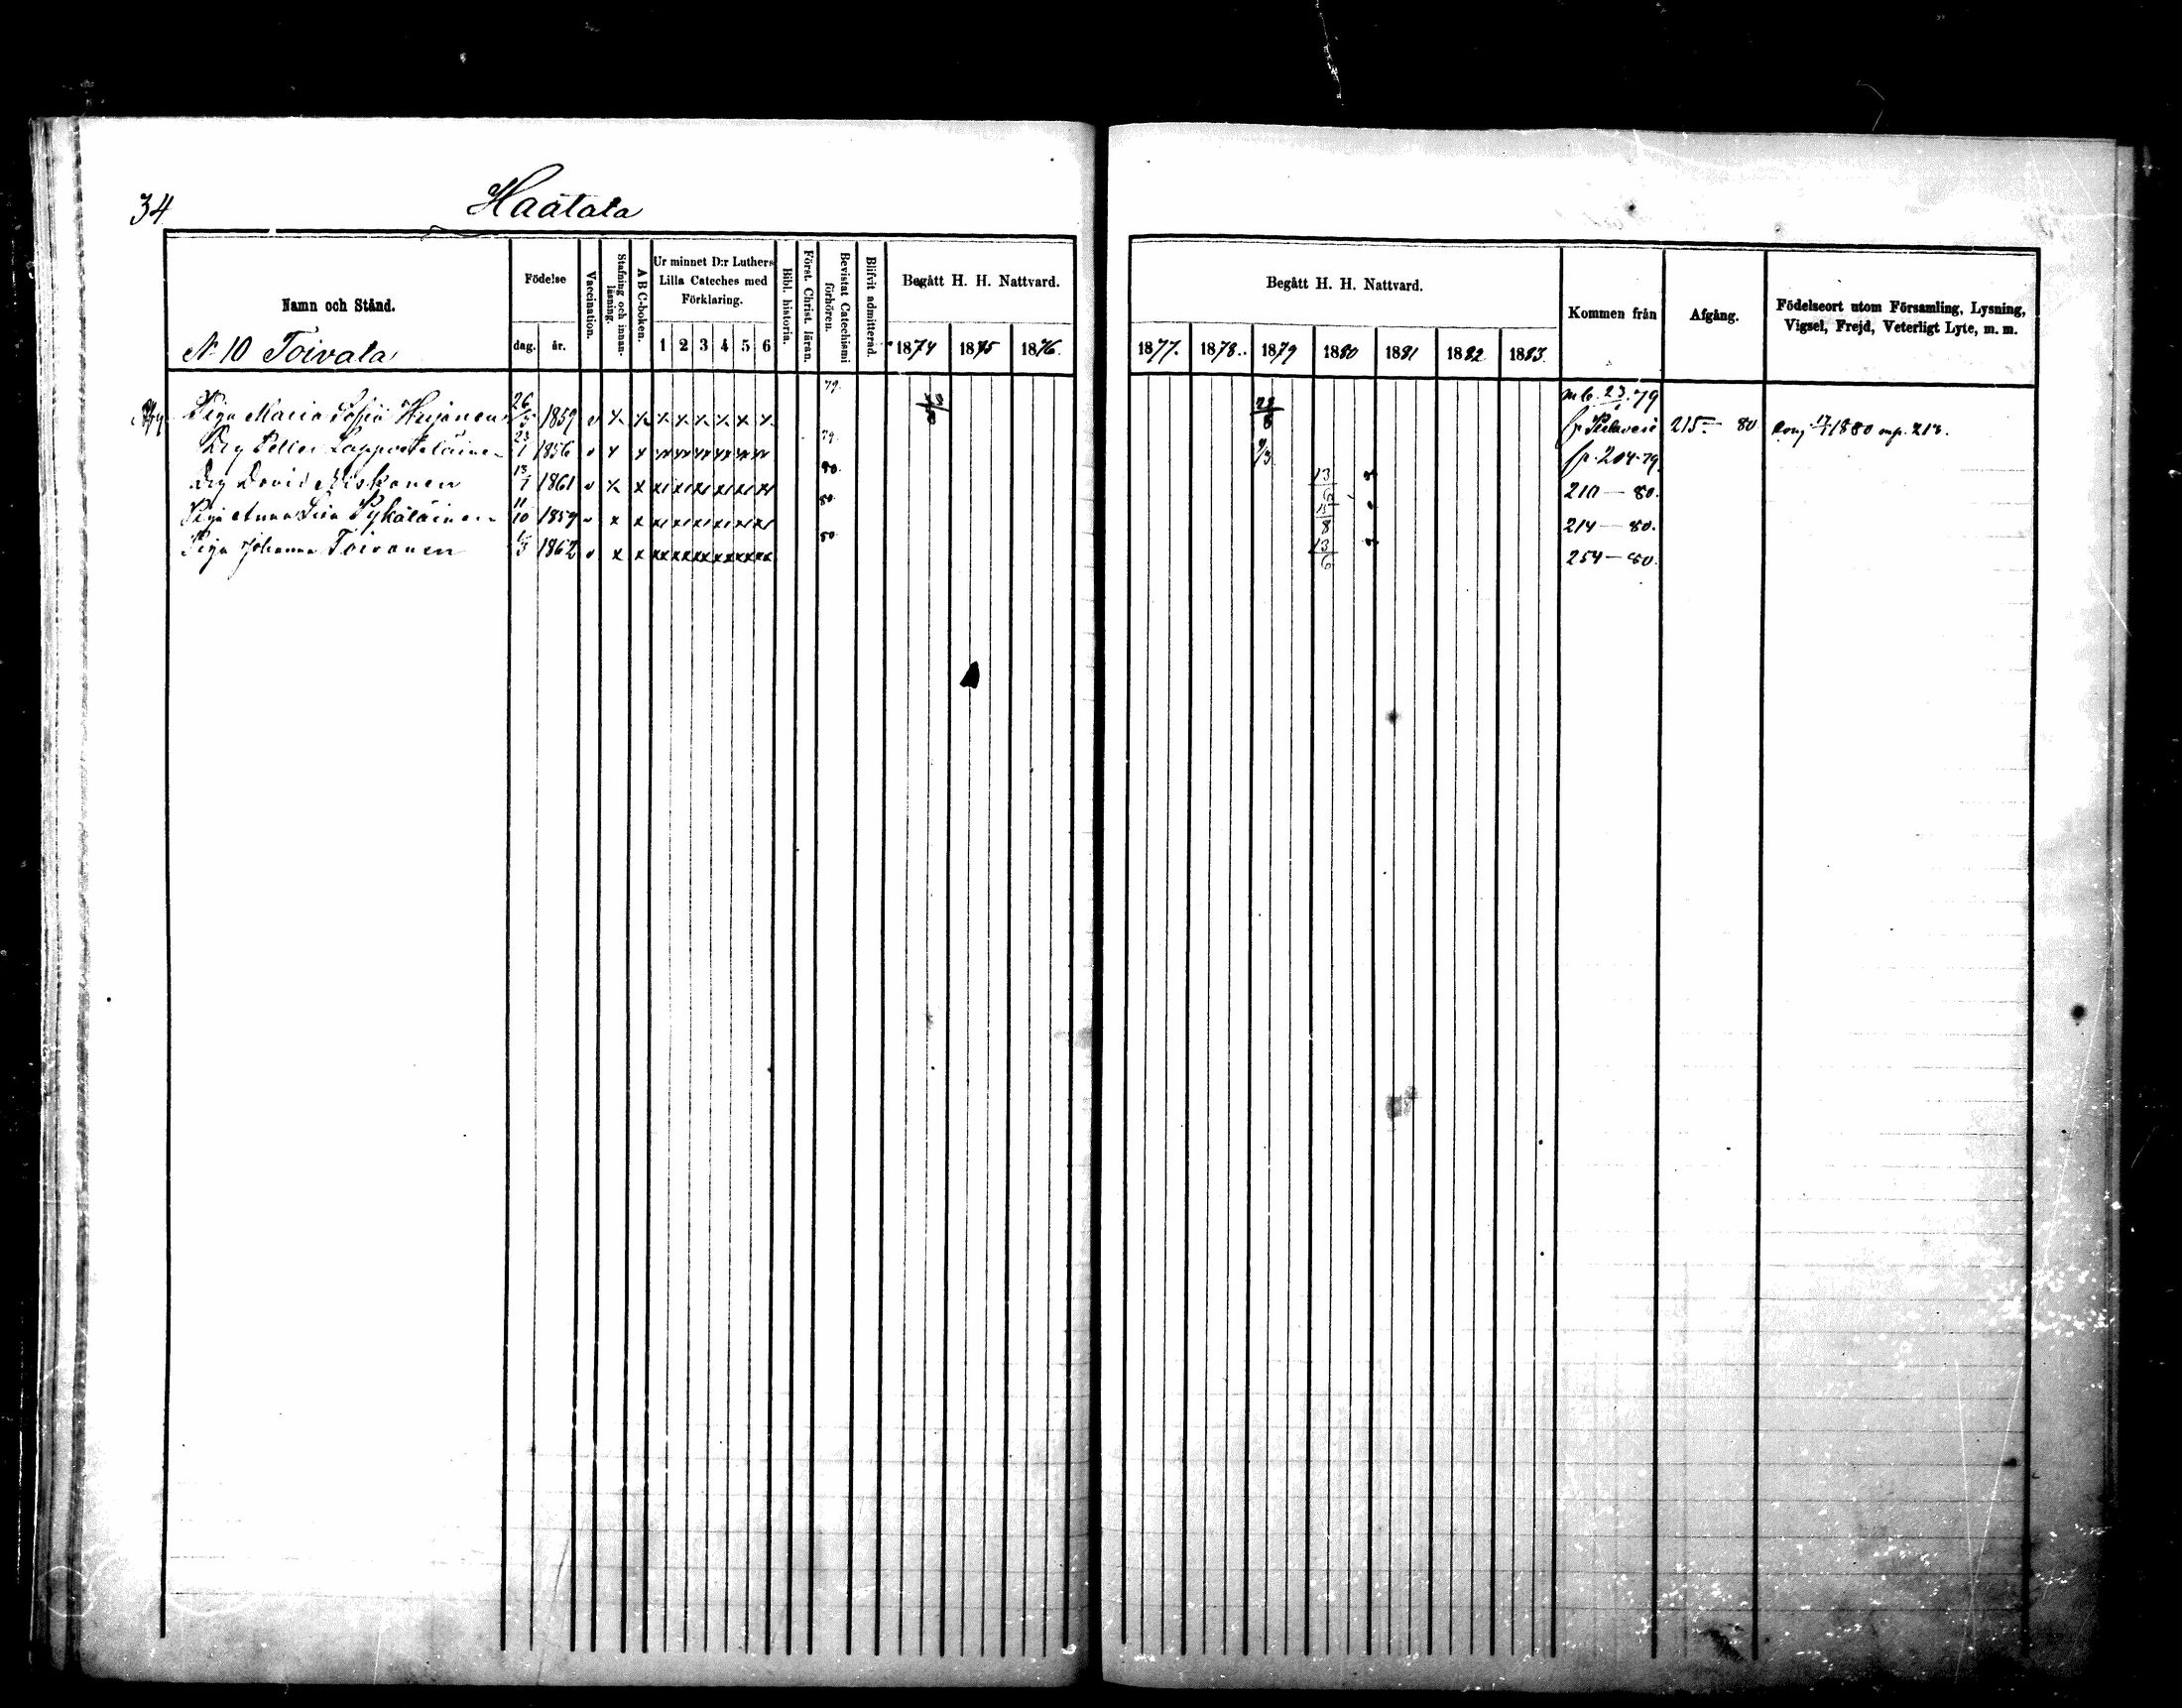 34
Haatala
Namn och Stånd.
N 10 Toivala
Födelse
dag. år.
Vaccination.
Stafning och innanläsning.
A B C-boken.
Ur minnet D:r Luthers
Lilla Cateches med
Förklaring.
1 2 3 4 5 6
Bibl. historia.
Först. Christ. läran.
Bevistat Catechismi förhören.
Blifvit admitterad.
Begått H. H. Nattvard.
1874 1875 1876.
Begått H. H. Nattvard.
1877. 1878. 1879 1880 1881 1882 1883.
Kommen från
Afgång.
Födelseort utom Församling, Lysning,
Vigsel, Frejd, Veterligt Lyte, m. m.
Piga Maria Sofia 26/5 1859 v x x x x x x x x 79. 28/8 mb. 23. 79 215 — 80 1880 mp. 213.
Drg Petter Lappveteläinen 23/1 1856 v x x 79. 9/3 204-79
Drg David Miskanen 13/7 1861 v x x 80. 13/6 210 — 80.
Piga Anna Lisa Pykäläinen 11/10 1859 v x x 80. 15/8 214 — 80.
Piga Johanna Toivanen 1862 v x x xx xx xx xx xx xx 80. 13/6 254 — 80.